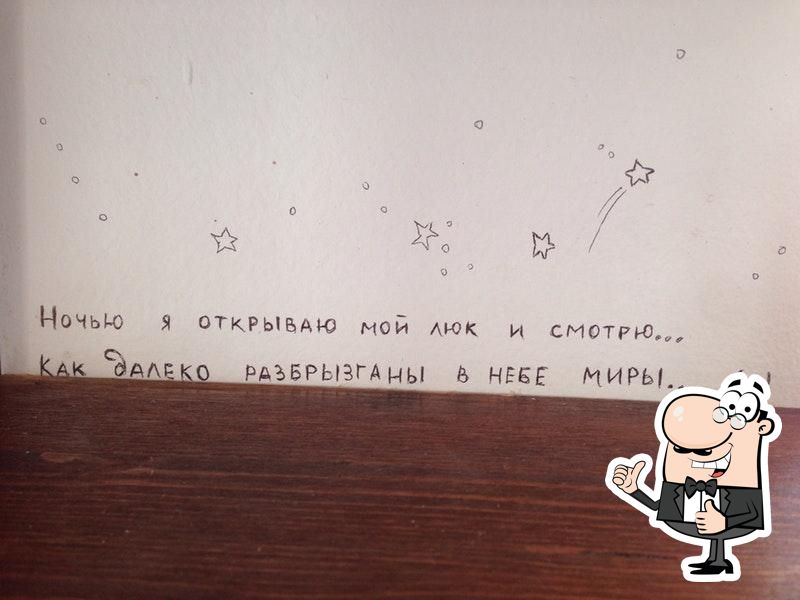 Ночью я открываю мой люк и смотрю...
Как далеко разбрызганы в небе миры..